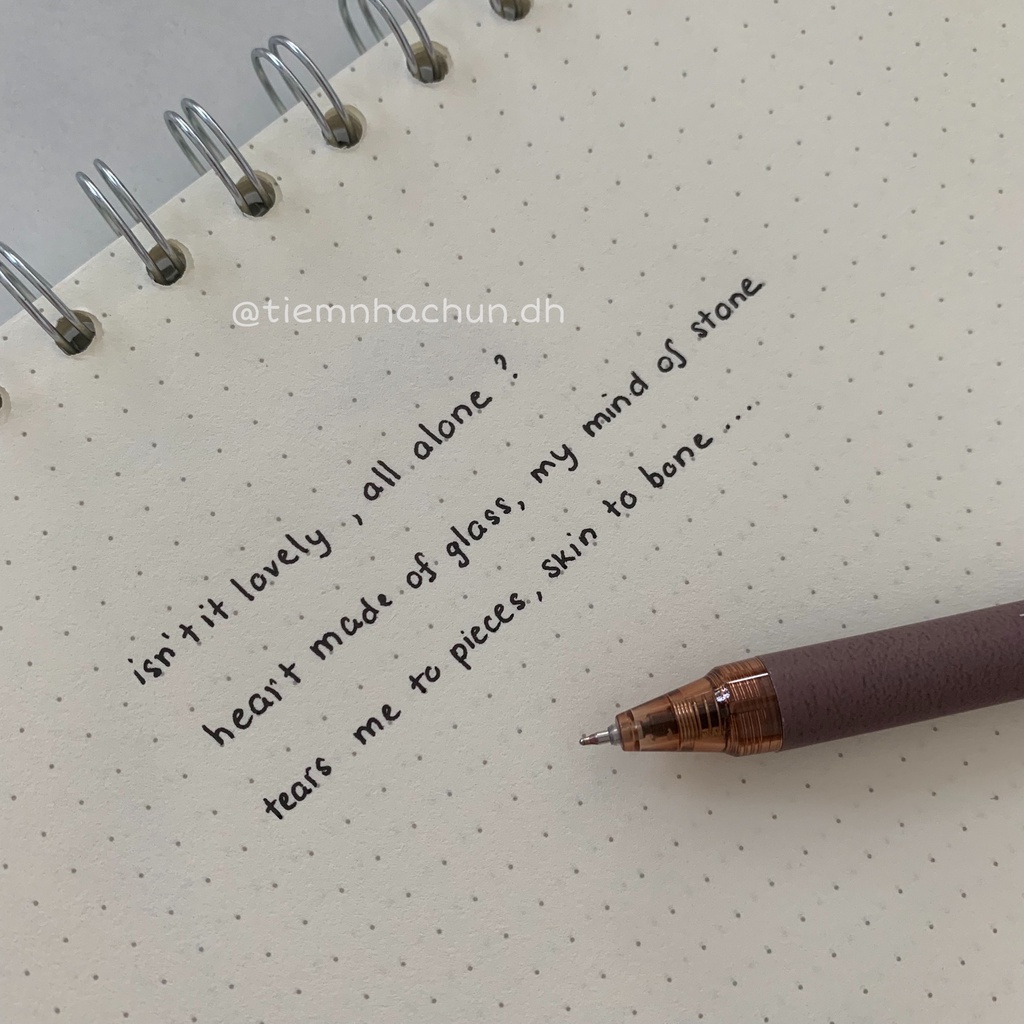 @tiemnhachun.dh
isn't it lovely, all alone?
heart made of glass, my mind of stone
tears me to pieces, skin to bone ....